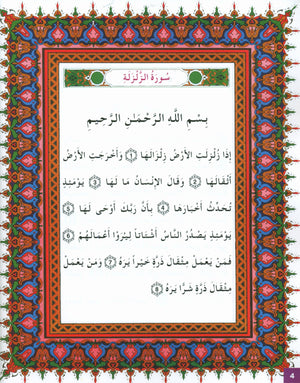 سُورَةُ الزَّلْزَلَةِ
بِسْمِ اللَّهِ الرَّحْمَٰنِ الرَّحِيمِ
إِذَا زُلْزِلَتِ الْأَرْضُ زِلْزَالَهَا ١ وَأَخْرَجَتِ الْأَرْضُ
أَثْقَالَهَا ٢ وَقَالَ الْإِنْسَانُ مَا لَهَا ٣ يَوْمَئِذٍ
تُحَدِّثُ أَخْبَارَهَا ٤ بِأَنَّ رَبَّكَ أَوْحَى لَهَا ٥
يَوْمَئِذٍ يَصْدُرُ النَّاسُ أَشْتَاتًا لِيُرَوْا أَعْمَالَهُمْ ٦
فَمَنْ يَعْمَلْ مِثْقَالَ ذَرَّةٍ خَيْرًا يَرَهُ ٧ وَمَنْ يَعْمَلْ
مِثْقَالَ ذَرَّةٍ شَرًّا يَرَهُ ٨
4